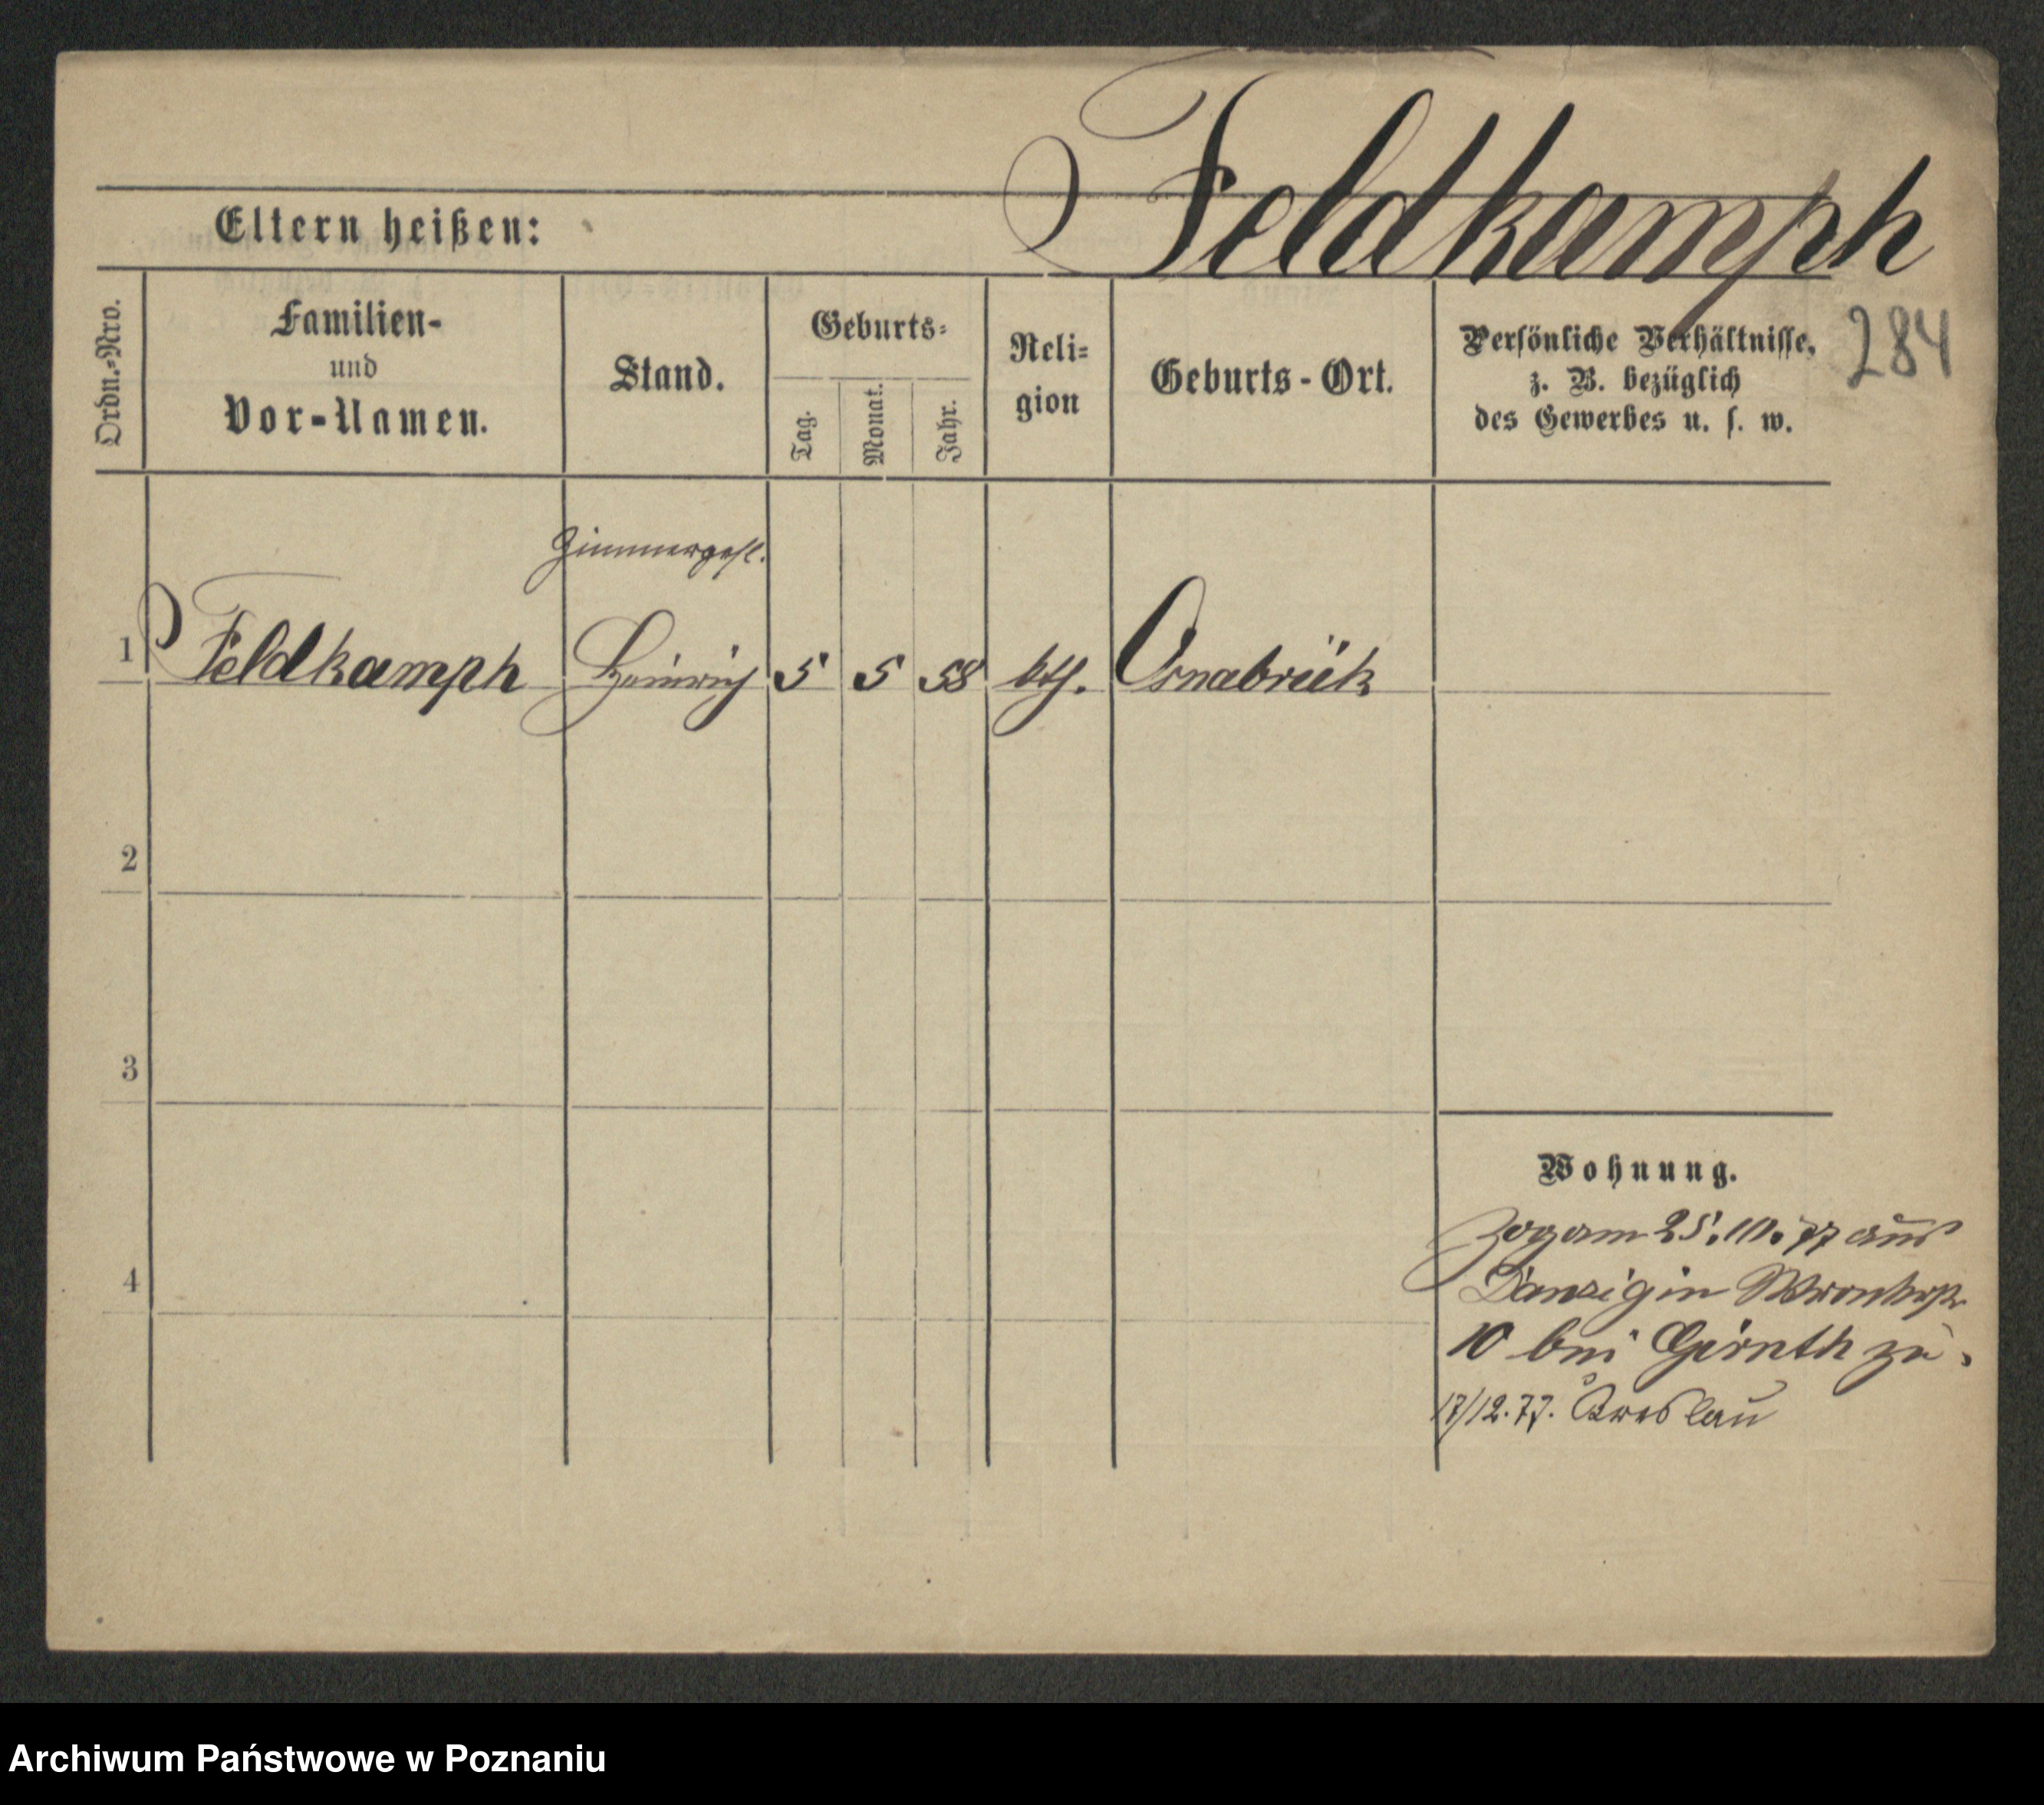 Feldkamph
Eltern heißen:
284
Ordn.-Nro.
Familien-
und
Vor-Namen.
Stand.
Geburts-
Tag.
Monat.
Jahr.
Reli-
gion
Geburts-Ort.
Persönliche Verhältnisse,
z. B. bezüglich
des Gewerbes u. s. w.
Zimmergesl.
1 Feldkamph Heinrich 5 5 58 kth. Osnabrük
2
3
4
Wohnung.
Zog am 25.10.77 aus
Danzig in Wronkerstr
10 bei Girnth zu.
17/12.77. Breslau
Archiwum Państwowe w Poznaniu